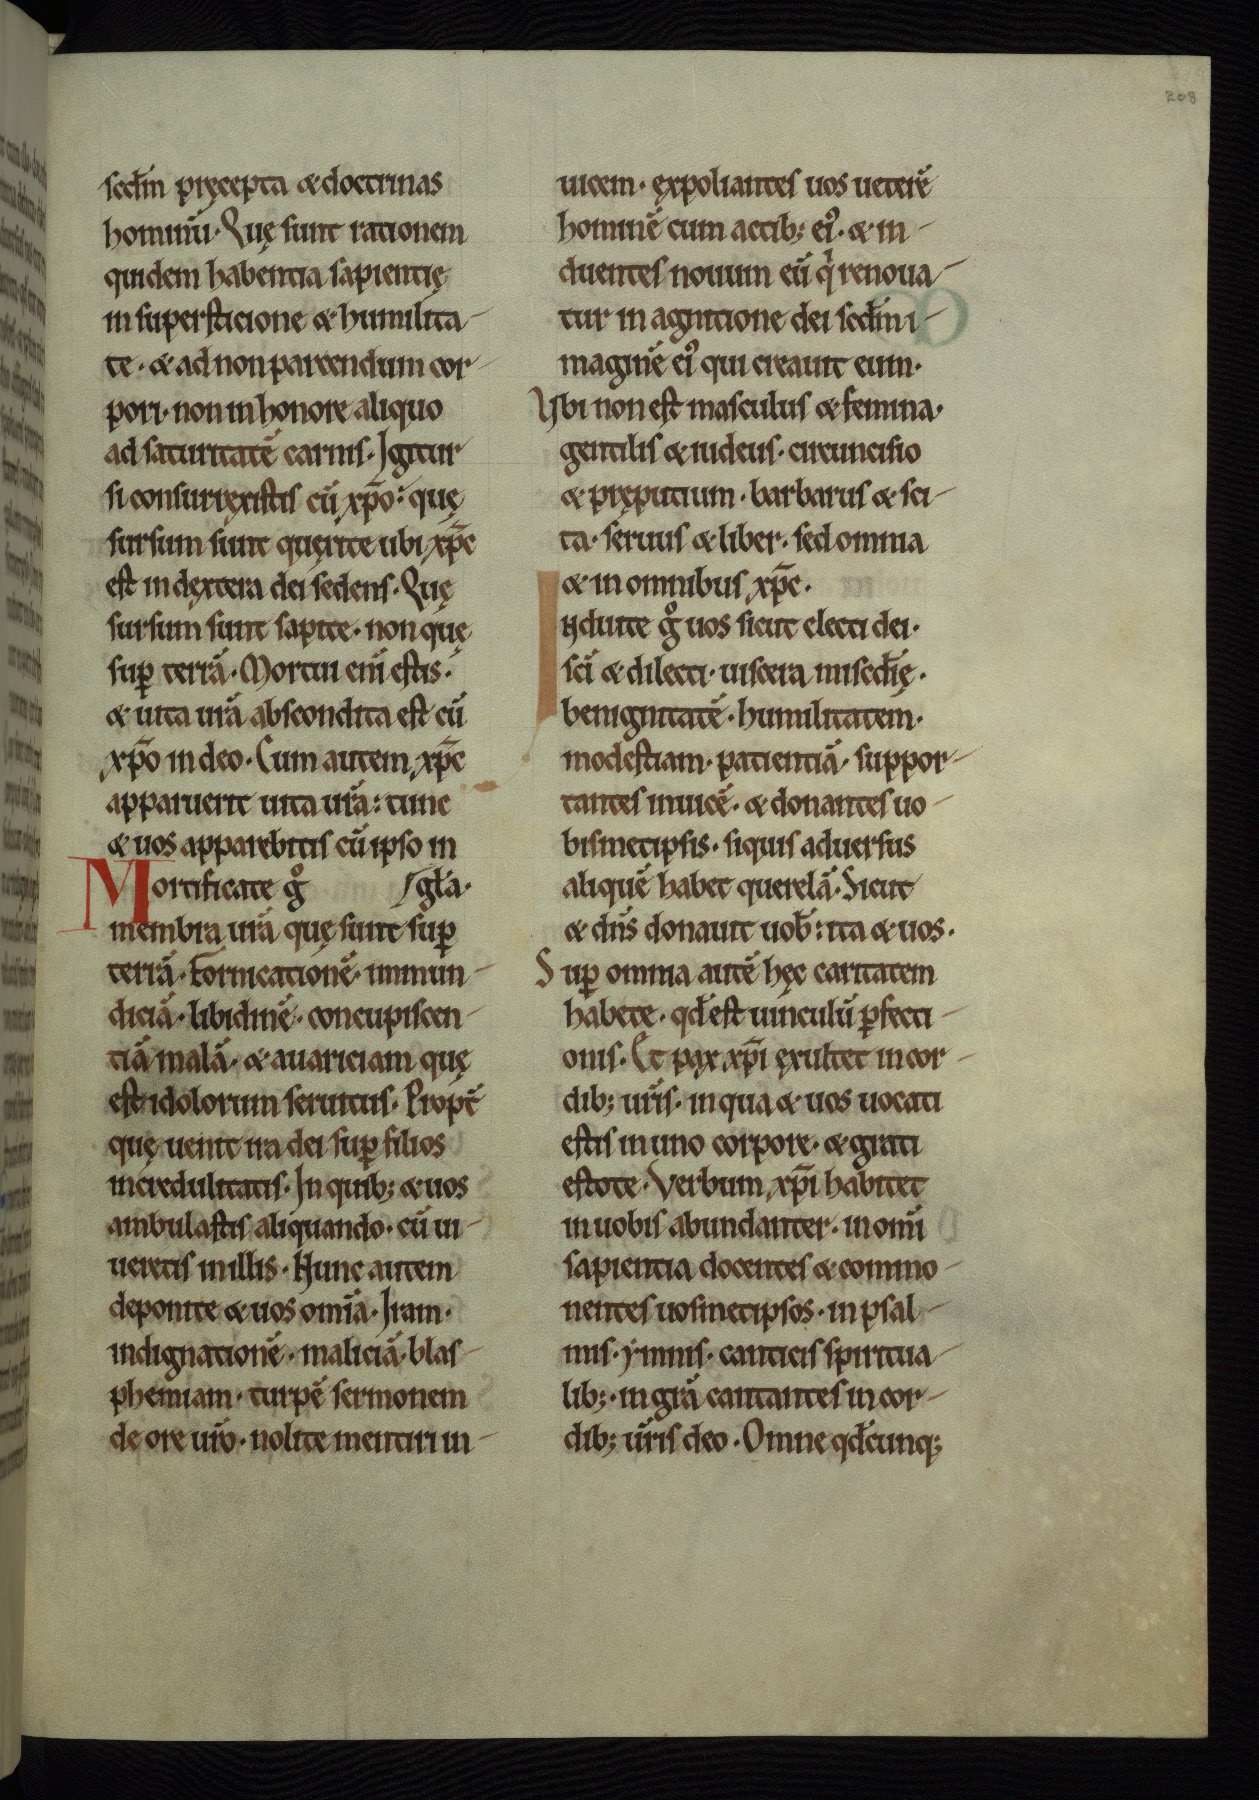 208
scd̄m pręcepta & doctrinas
hominū· Quę sunt rationem
quidem habentia sapientię
in supersticione & humilita-
te· & ad non parcendum cor-
pori· non in honore aliquo
ad saturitatē carnis· Igitur
si consurrexistis cū xp̄o: quę
sursum sunt quęrite ubi xp̄c
est in dextera dei sedens· Quę
sursum sunt sapite· non quę
sup̱ terrā· Mortui eni̅ estis·
& uita ur̄a abscondita est cū
xp̄o in deo· Cum autem xp̄c
apparuerit uita ur̄a: tunc
& uos apparebitis cū ipso in
gl̄a·
Mortificate gͦ
membra ur̄a quę sunt sup̱
terrā· Fornicationē· inmun-
diciā· libidinē· concupiscen-
tiā malā· & auariciam quę
est idolorum seruitus· Propt̄
quę uenit ira dei sup̱ filios
incredulitatis· In quib; & uos
ambulastis aliquando· cū ui-
ueretis in illis· Nunc autem
deponite & uos om̄ia· Iram·
indignationē· maliciā· blas-
phemiam· turpē sermonem
de ore ur̄o· nolite mentiri in-
uicem· expoliantes uos ueterē
hominē cum actib; eiꝰ· & in-
duentes nouum eū qͥ renoua-
tur in agnitione dei scd̄m i-
maginē eiꝰ qui creauit eum·
Vbi non est masculus & femina·
gentilis & iudeus· circuncisio
& pręputium· barbarus & sci-
ta· seruus & liber· sed omnia
& in omnibus xp̄c·
Induite gͦ uos sicut electi dei·
sc̄i & dilecti· uiscera misc̄dię·
benignitatē· humilitatem·
modestiam· patientiā· suppor-
tantes inuicē· & donantes uo-
bismetipsis· siquis aduersus
aliquē habet querelā· Sicut
& dn̄s donauit uob̄: ita & uos·
Sup̱ omnia autē hęc caritatem
habete· qd̄ est uinculū p̱fecti-
onis· Et pax xp̄i exultet in cor-
dib; ur̄is· in qua & uos uocati
estis in uno corpore· & grati
estote· Verbum xp̄i habitet
in uobis abundanter· in om̄i
sapientia docentes & commo-
nentes uosmetipsos· in psal-
mis· ymnis· canticis spiritua-
lib;· in gr̄a cantantes in cor-
dib; ur̄is deo· Omne qd̄cunq;